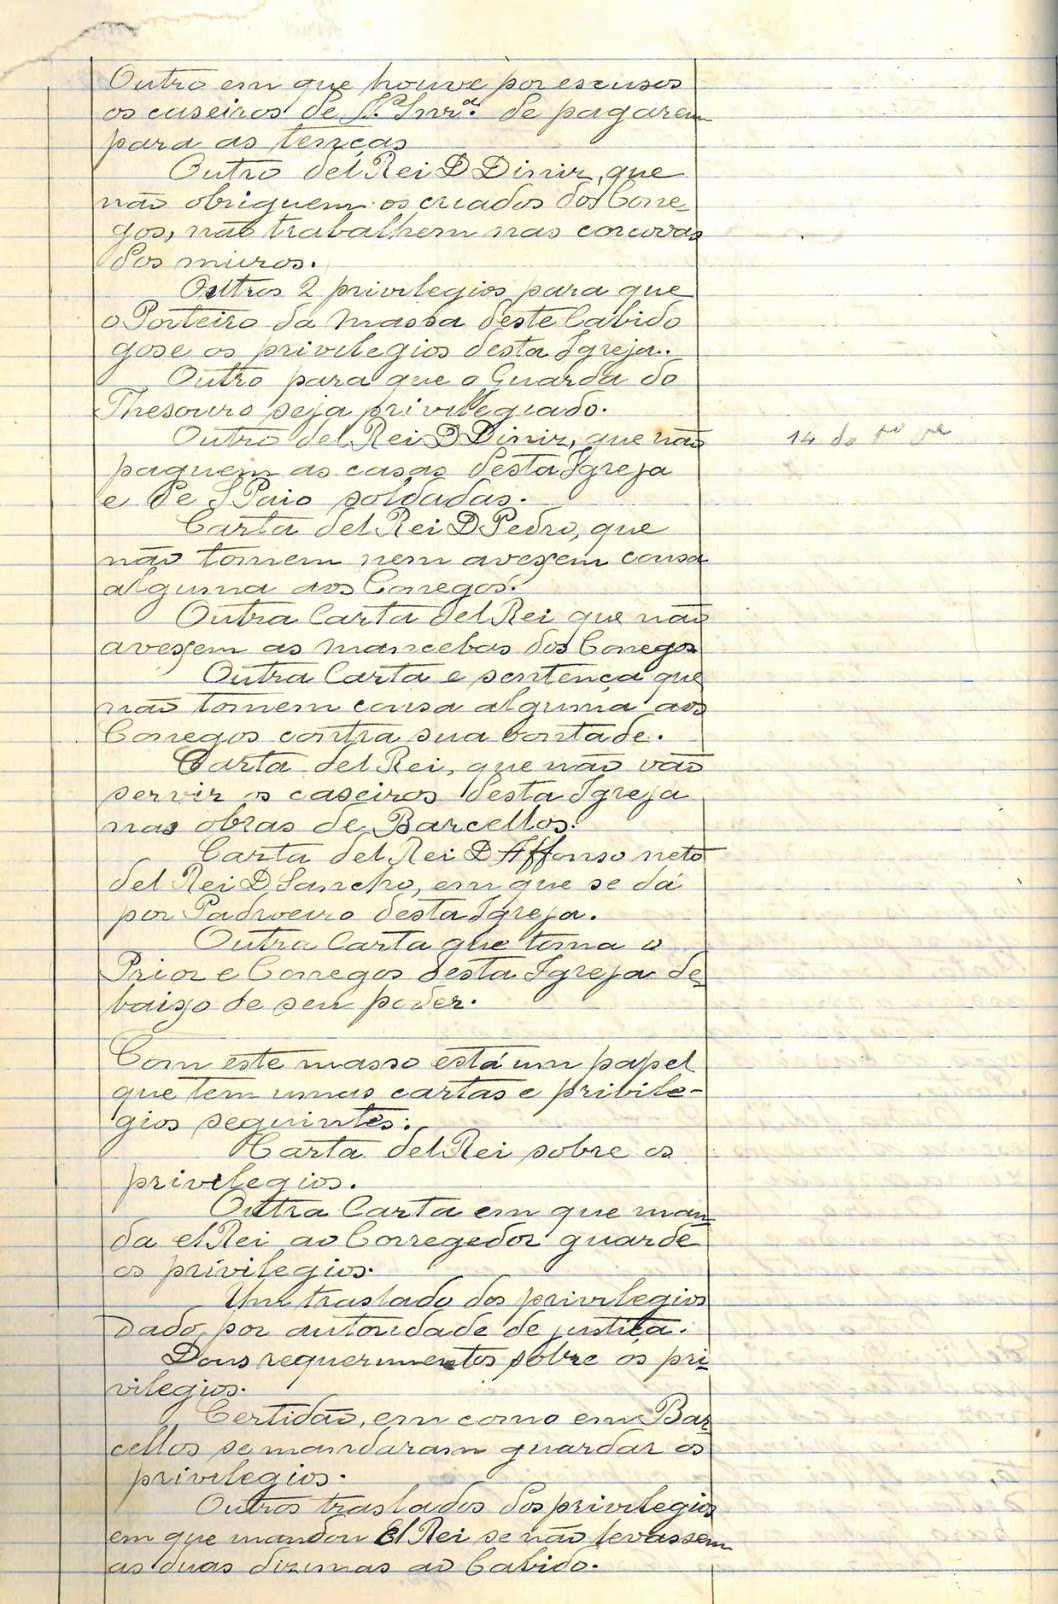 Outro em que houve por escusos
os caseiros de N. Snrª. de pagarem
para as tenças
Outro del Rei D Diniz, que
não obriguem os criados dos Cone-
gos, não trabalhem nas
dos muros.
Outros 2 privilegios para que
o Porteiro da Massa deste Cabido
gose os privilegios desta Igreja.
Outro para que o Guarda do
Thesouro seja privilegiado.
Outro del Rei D Diniz, que não
paguem as casas desta Igreja
e de S Paio soldadas.
Carta del Rei D Pedro, que
não tomem nem avexem cousa
alguma aos Conegos.
Outra Carta del Rei que não
avexem as mancebas dos Conegos
Outra Carta e sentença que
não tomem cousa alguma aos
Conegos contra sua vontade.
Carta del Rei, que não vão
servir os caseiros desta Igreja
nas obras de Barcellos.
Carta del Rei D Affonso neto
del Rei D Sancho, em que se dá
por Padroeiro desta Igreja.
Outra Carta que toma o
Prior e Conegos desta Igreja de-
baixo de seu poder.
Com este masso está um papel
que tem umas cartas e privile-
gios seguintes:
Carta del Rei sobre os
privilegios.
Outra Carta em que man-
da el Rei ao Corregedor guarde
os privilegios.
Um traslado dos privilegios
Dado por autoridade de justiça.
Dous requerimentos sobre os pri-
vilegios.
Certidão, em como em Bar-
cellos se mandaram guardar os
privilegios.
Outros traslados dos privilegios
em que mandou El Rei se não levassem
as duas dizimas ao Cabido.
14 do